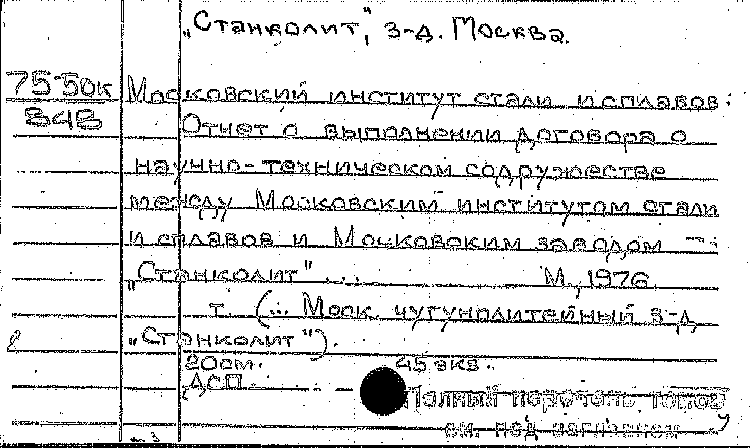 „Станколит", з-д. Москва.
75-50к Московский институт стали и сплавов:
848 Отчет о выполнении договора о
научно-техническом содружестве
между Московским институтом стали
и сплавов и Московским заводом
„Станколит" ... М., 1976
т. (... Моск. чугунолитейный з-д
„Станколит").
20см. 45 экз.
ДСП.
Полный перечень
см. под заглавием